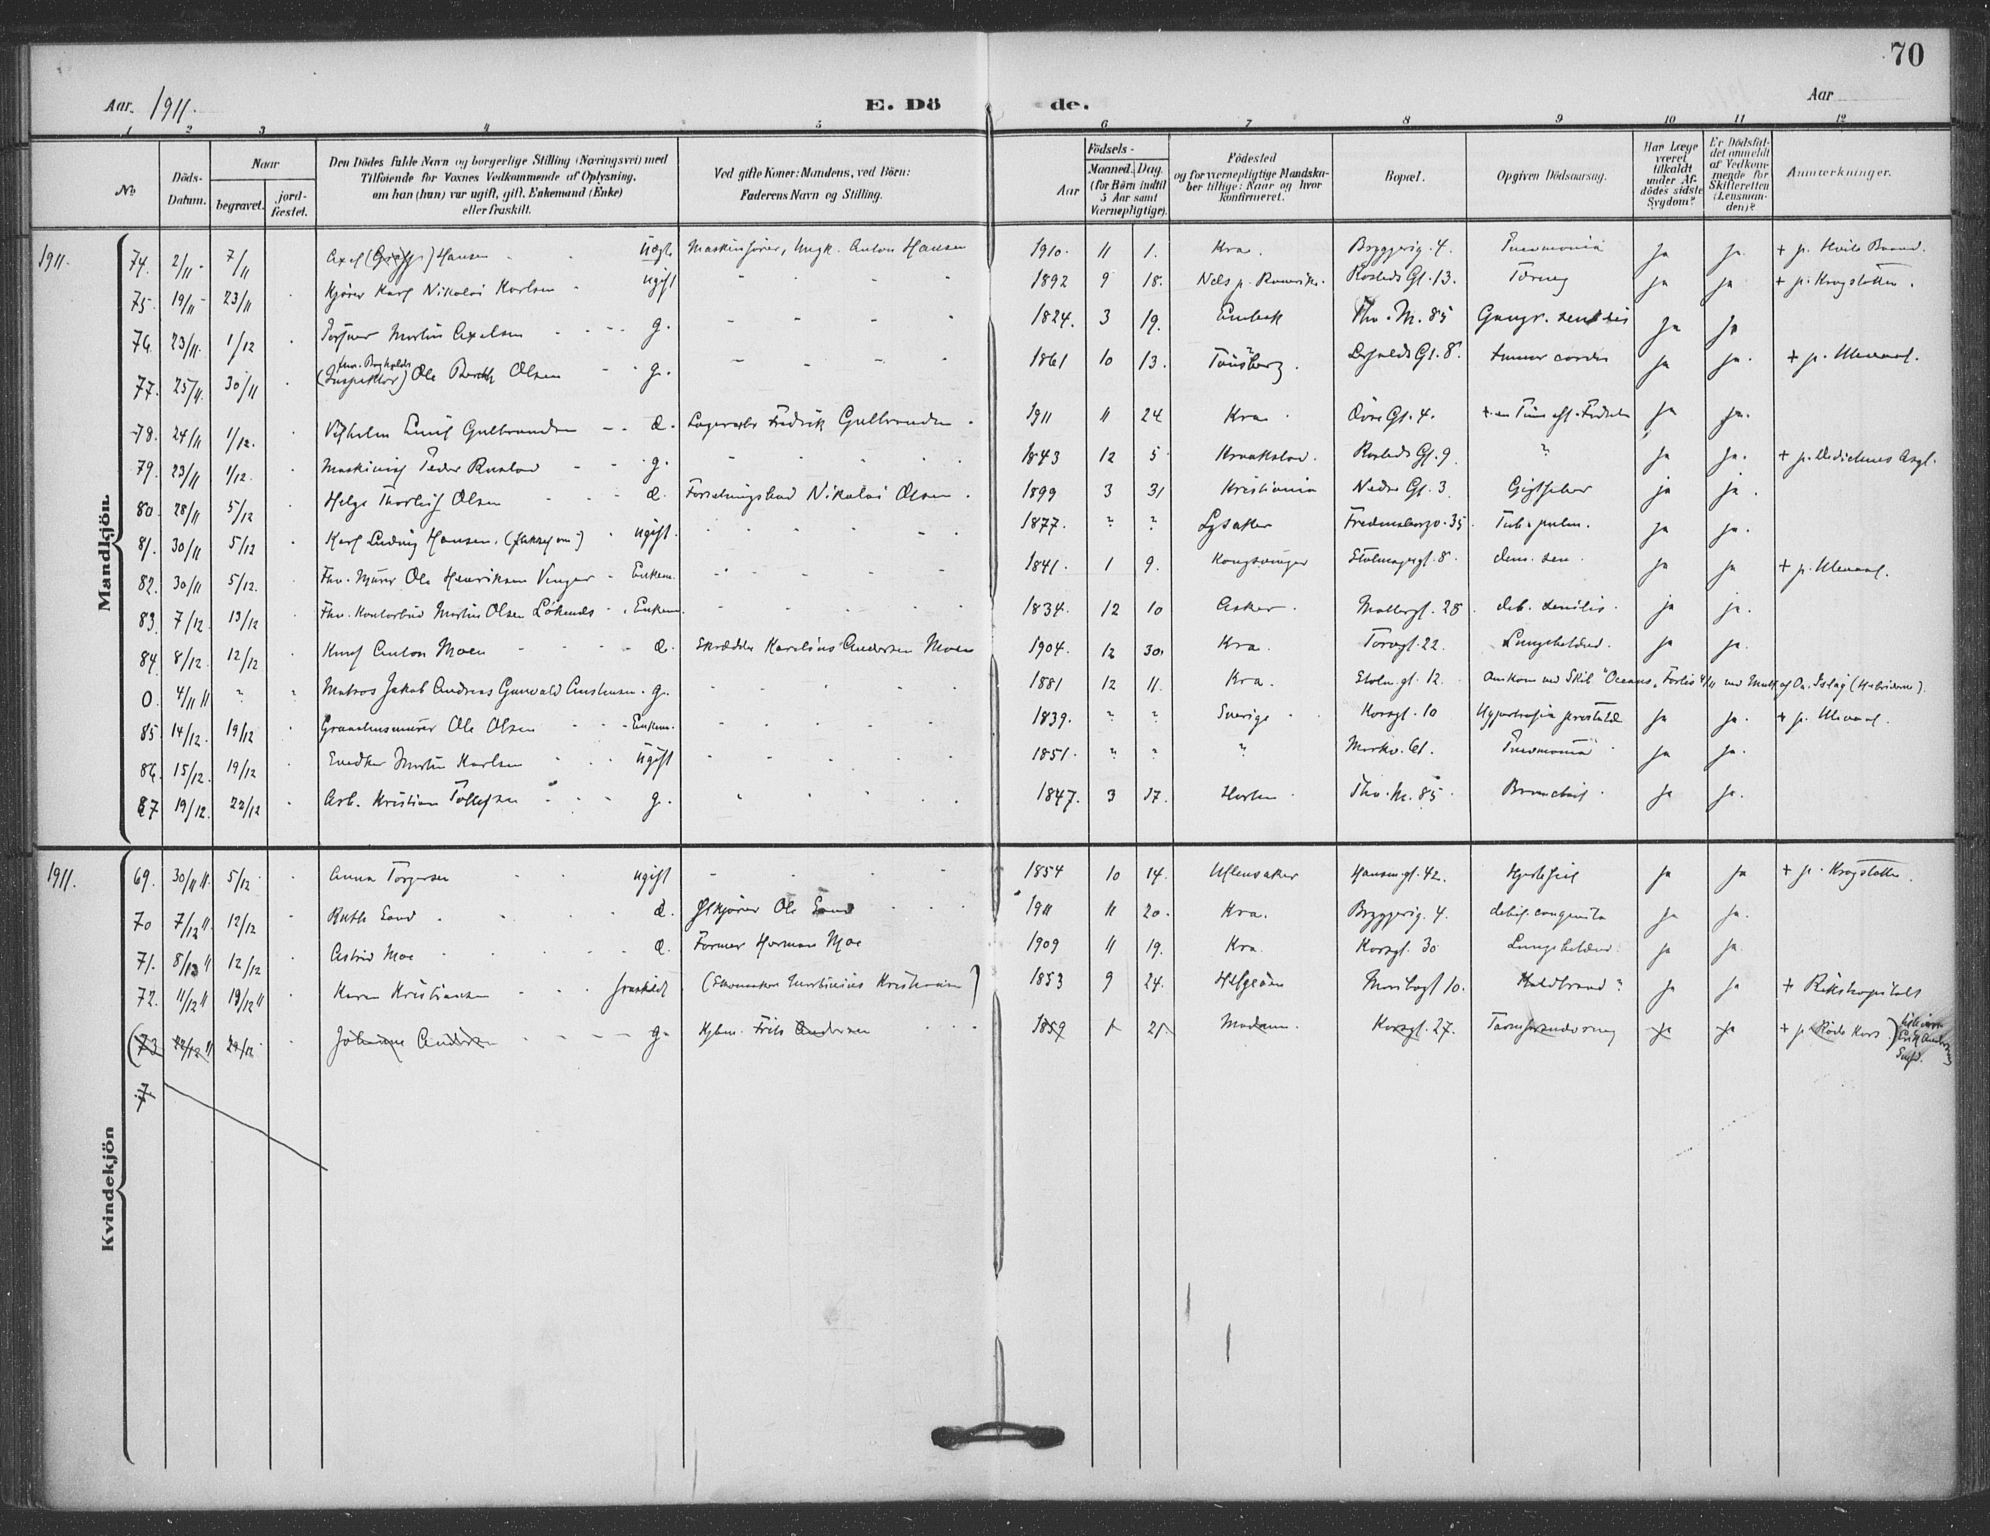 70
Aar 1911. E. Dö de. Aar
1 2 3 4 5 6 7 8 9 10 11 12
No. Döds-Datum. Naar begravet. jord-fæstet. Den Dödes fulde Navn og borgerlige Stilling (Næringsvei) med Tilföiende for Voxnes Vedkommende af Oplysning, om han (hun) var ugift, gift, Enkemand (Enke) eller fraskilt. Ved gifte Koner: Mandens, ved Börn: Faderens Navn og Stilling. Födsels- Aar Maaned. Dag. (for Börn indtil 5 Aar samt Værnepligtige). Födested og for værnepligtige Mandskaber tillige: Naar og hvor konfirmeret. Bopæl. Opgiven Dödsaarsag. Har Læge været tilkaldt under Afdödes sidste Sygdom? Er Dödsfaldet anmeldt af Vedkommende for Skifteretten (Lensmanden)? Anmærkninger.
Mandkjön.
1911. 74. 2/11 7/11 Axel Hansen Uægt. Maskinfører, Ungk. Anton Hansen 1910. 11 1. Kra. Bryggerig. 4. Pneumonia Ja Ja.
75. 19/11 23/11 Kjører Karl Nikolai Karlsen ugift 1892 9 18. Nes p. Romerike. Rosteds Gt. 13. Tæring Ja Ja + p. Krogstøtten.
76. 23/11. 1/12 Martin Axelsen g. 1824. 3 19. Thv. M. 85 Gangr. senilis Ja Ja
77. 25/11. 30/11 (Inspektør) Ole Olsen g. 1861 10 13. Tønsberg. Gt. 8. tumor cordis Ja Ja. + p. Ullevaal.
78. 24/11 1/12. Vilhelm Emil Gulbrandsen d. Lagerarb. Fredrik Gulbrandsen. 1911 11 24 Kra. Øvre Gt. 4. Ja Ja.
79. 23/11 1/12. Maskinist Peder g. 1843 12 5 Kraakstad. Rosteds Gt. 9. ? Ja Ja. + p. Dedichens Asyl.
80. 28/11 5/12 Helge Thorleif Olsen d. Forretningsbud Nikolai Olsen. 1899 3 31 Kristiania Nedre Gt. 3. Gigtfeber ja ja.
81. 30/11 5/12 Karl Ludvig Hansen. ugift. 1877. ? ? Lysaker Fredensborgv. 35. Tub. pulm. Ja Ja.
82. 30/11 5/12. Fhv. Murer Ole Henriksen Vinger Enkem. 1841. 1 9. Kongsvinger Stolmagergt. 8 dem. sen. Ja Ja + p. Ullevaal.
83. 7/12. 13/12 Fhv. Kontorbud Martin Olsen Enkem. 1834. 12 10 Asker. Møllergt. 28 deb. senilis. ja ja.
84. 8/12. 12/12 Knut Anton Moen d. Skrædder Karolius Andersen Moen 1904. 12 30. Kra. Torvgt. 22. Lungebetænd. Ja Ja.
0. 4/11 11 ? Matros Jakob Andreas Gunvald g. 1881 12 11. Kra. Stolm. gt. 12. Omkom ved Skib. "Oceans" Forlis 4/11 ved (Hebriderne).
85. 14/12. 19/12 Ole Olsen Enkem. 1839. ? ? Sverige Korsgt. 10 Hypertrofia prostatæ Ja Ja. + p. Ullevaal.
86. 15/12. 19/12 Snedker Martin Karlsen ugift 1851. ? ? ? Markv. 61. Pneumonia Ja Ja.
87. 19/12. 22/12 Arb. Kristian Tollefsen g. 1847. 3 17. Horten. Thv. M. 85. Bronchit. Ja Ja.
Kvindekjön
1911. 69. 30/11 11. 5/12 Anna Torgersen ugift 1854 10 14. Ullensaker Hausm. gt. 42. Hjertefeil Ja Ja + p. Krogstøtten.
70 7/12 11 12/12 Ruth Sand d. Ølkjører Ole Sand 1911 11 20. Kra. Bryggerig. 4. debil. congenita Ja Ja.
71. 8/12 11 12/12 Astrid Moe d. Former Herman Moe 1909 11 19. Kra. Korsgt. 30 Lungebetænd. Ja Ja.
72. 11/12 11 19/12 11 Karen Kristiansen fraskilt (Skomaker Martinius Kristiansen) 1853 9 24. Helgeøen Maribogt 10. Koldbrand? Ja Ja + Rikshospitalet
(73 22/12 11 Johanne Andersen g. Kjbm. Frits Andersen 1859 1 21. Modum. Korsgt. 27. Tarmforsnevring Ja Ja + p. Røde Kors.)
7